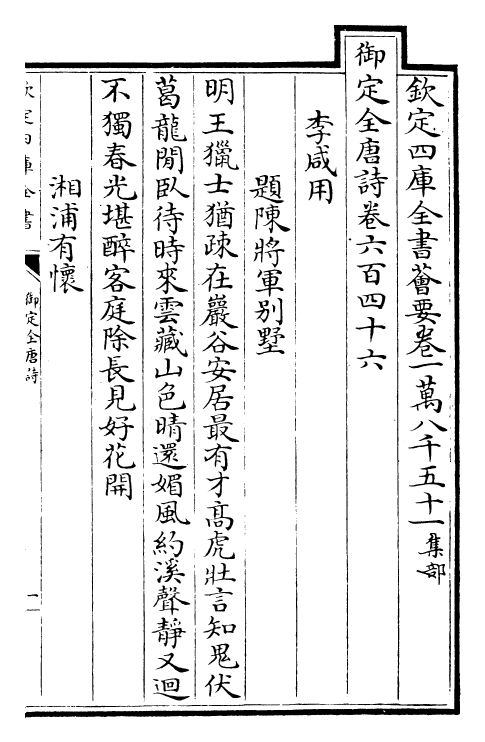 欽定四庫全書薈要卷一萬八千五十一集部
御定全唐詩卷六百四十六
李咸用
題陳將軍别墅
明王獵士猶疎在巖谷安居最有才髙虎壯言知鬼伏
葛龍閒臥待時來雲藏山色晴還媚風約溪聲靜又迴
不獨春光堪醉客庭除長見好花開
湘浦有懷
欽定四庫全書
御定全唐詩
一